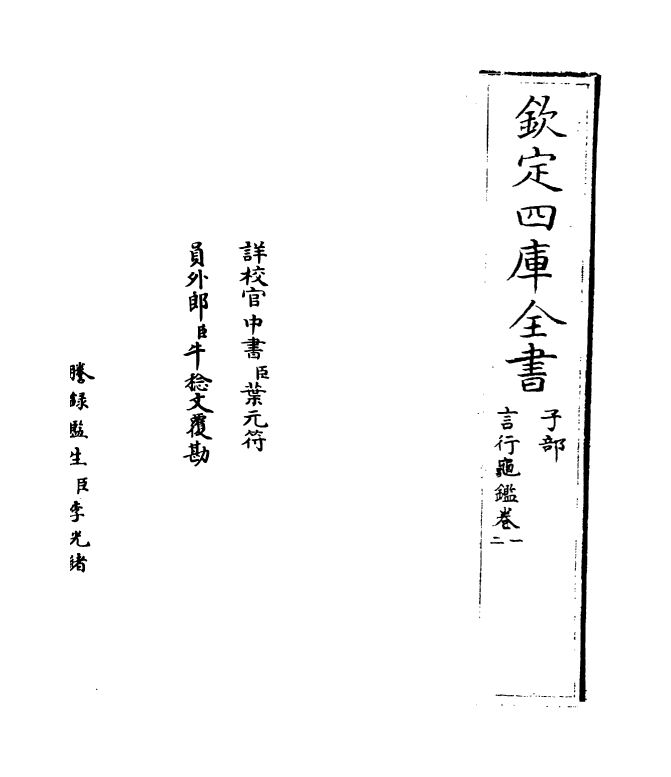 欽定四庫全書
子部
言行龜鑑卷一二
詳校官中書臣葉元符
員外郎臣牛稔文覆勘
謄錄監生臣李光緒